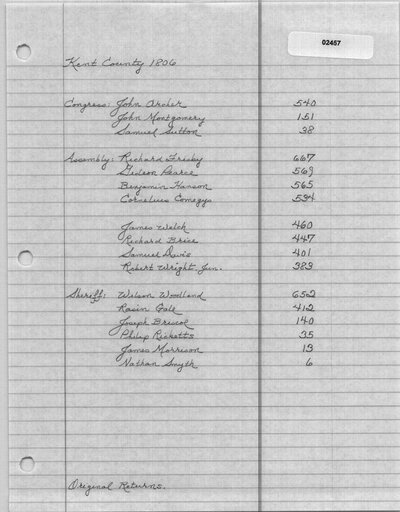 02457
Kent County 1806
Congress: John Archer 540
John Montgomery 151
Samuel Sutton 38
Assembly: Richard Frisby 667
Gideon Pearce 569
Benjamin Hanson 565
Cornelius Comegys 534
James Welch 460
Richard Brice 447
Samuel Davis 401
Robert Wright Jun. 383
Sheriff: William Woodland 652
Rasin Gale 412
Joseph Briscoe 140
Philip Ricketts 35
James Morrison 13
Nathan Smyth 6
Original Returns.